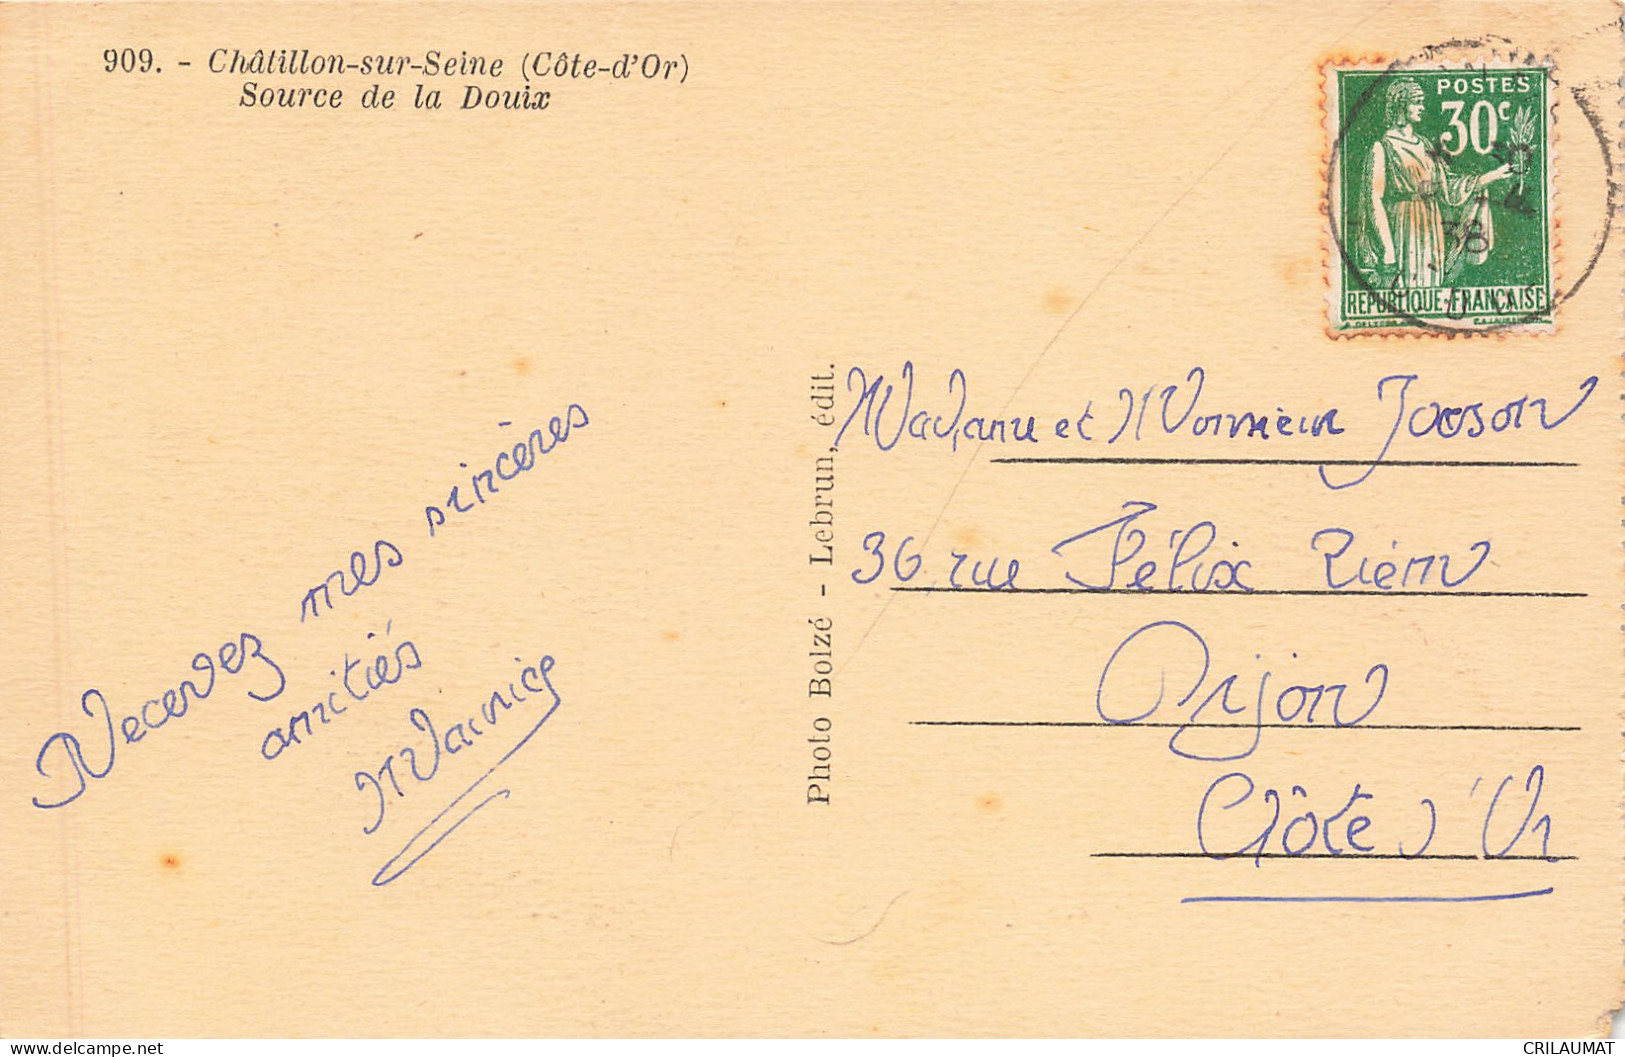 909. - Châtillon-sur-Seine (Côte-d'Or)
Source de la Douix
POSTES
30c
38
REPUBLIQUE-FRANÇAISE
Recevez mes sincères
amitiés
Photo Bolzé - Lebrun, édit.
Madame et Monsieur
36 rue Félix
Dijon
Côte d'Or
delcampe.net
CRILAUMAT